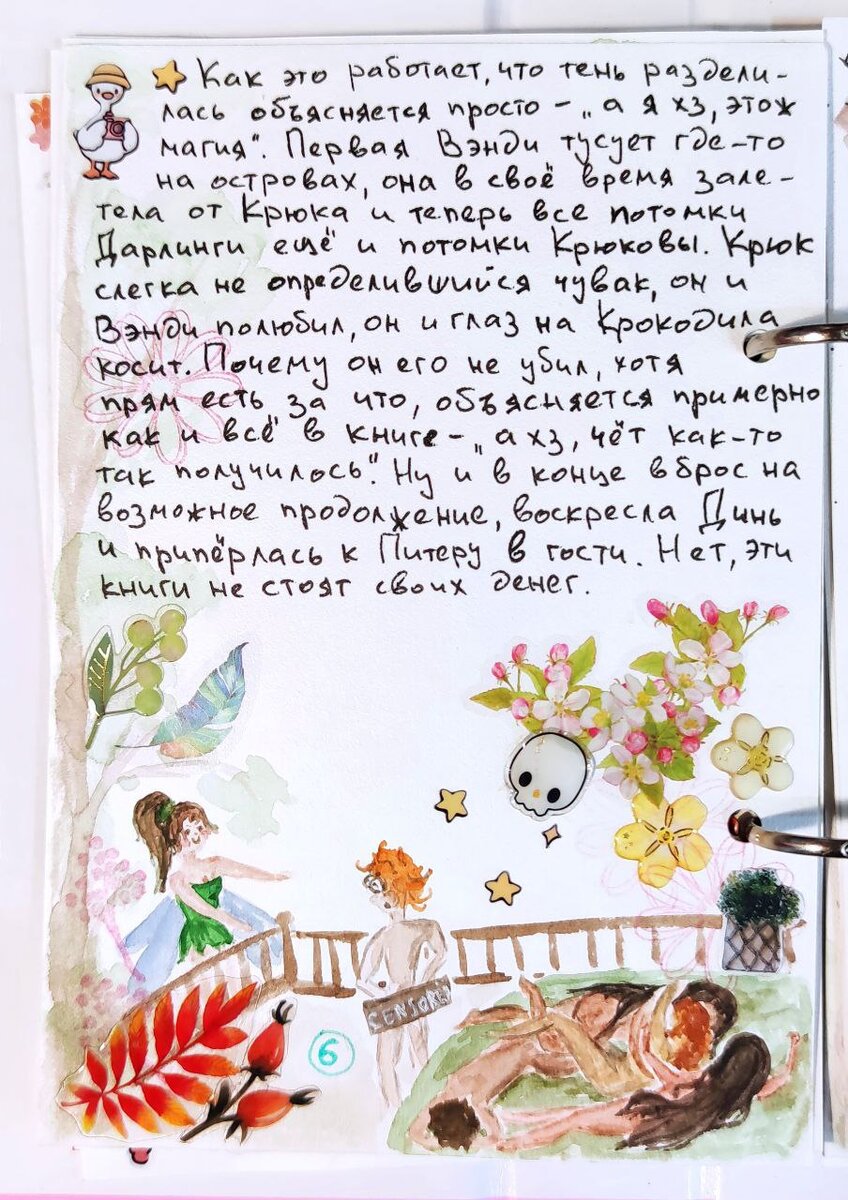 Как это работает, что тень раздели-
лась объясняется просто - „а я хз, этож
магия". Первая Вэнди тусует где-то
на островах, она в своё время зале-
тела от Крюка и теперь все потомки
Дарлинги ещё и потомки Крюковы. Крюк
слегка не определившийся чувак, он и
Вэнди полюбил, он и глаз на Крокодила
косит. Почему он его не убил, хотя
прям есть за что, объясняется примерно
как и всё в книге - „а хз, чёт как-то
так получилось". Ну и в конце вброс на
возможное продолжение, воскресла Динь
и припёрлась к Питеру в гости. Нет, эти
книги не стоят своих денег.
CENSORED
6